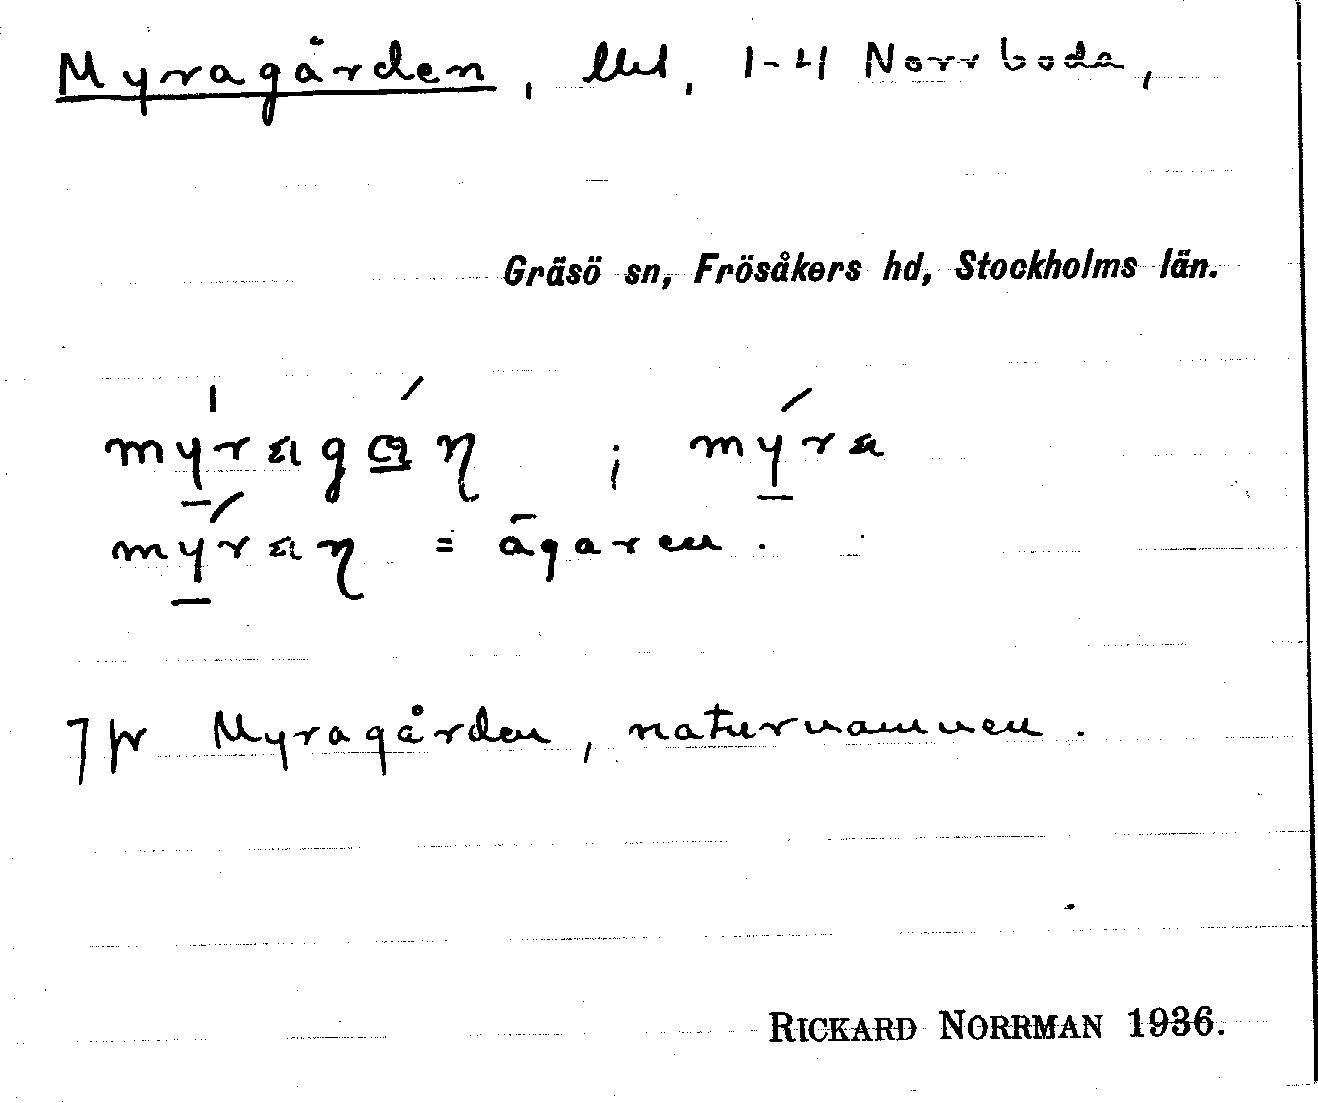 Myragården, 1-4 Norrboda,
Gräsö sn, Frösåkers hd, Stockholms län.
my̱raga̱ɳ ; my̱ra
my̱raɳ = ägaren.
Jfr Myragården, naturnamnen.
RICKARD NORRMAN 1936.